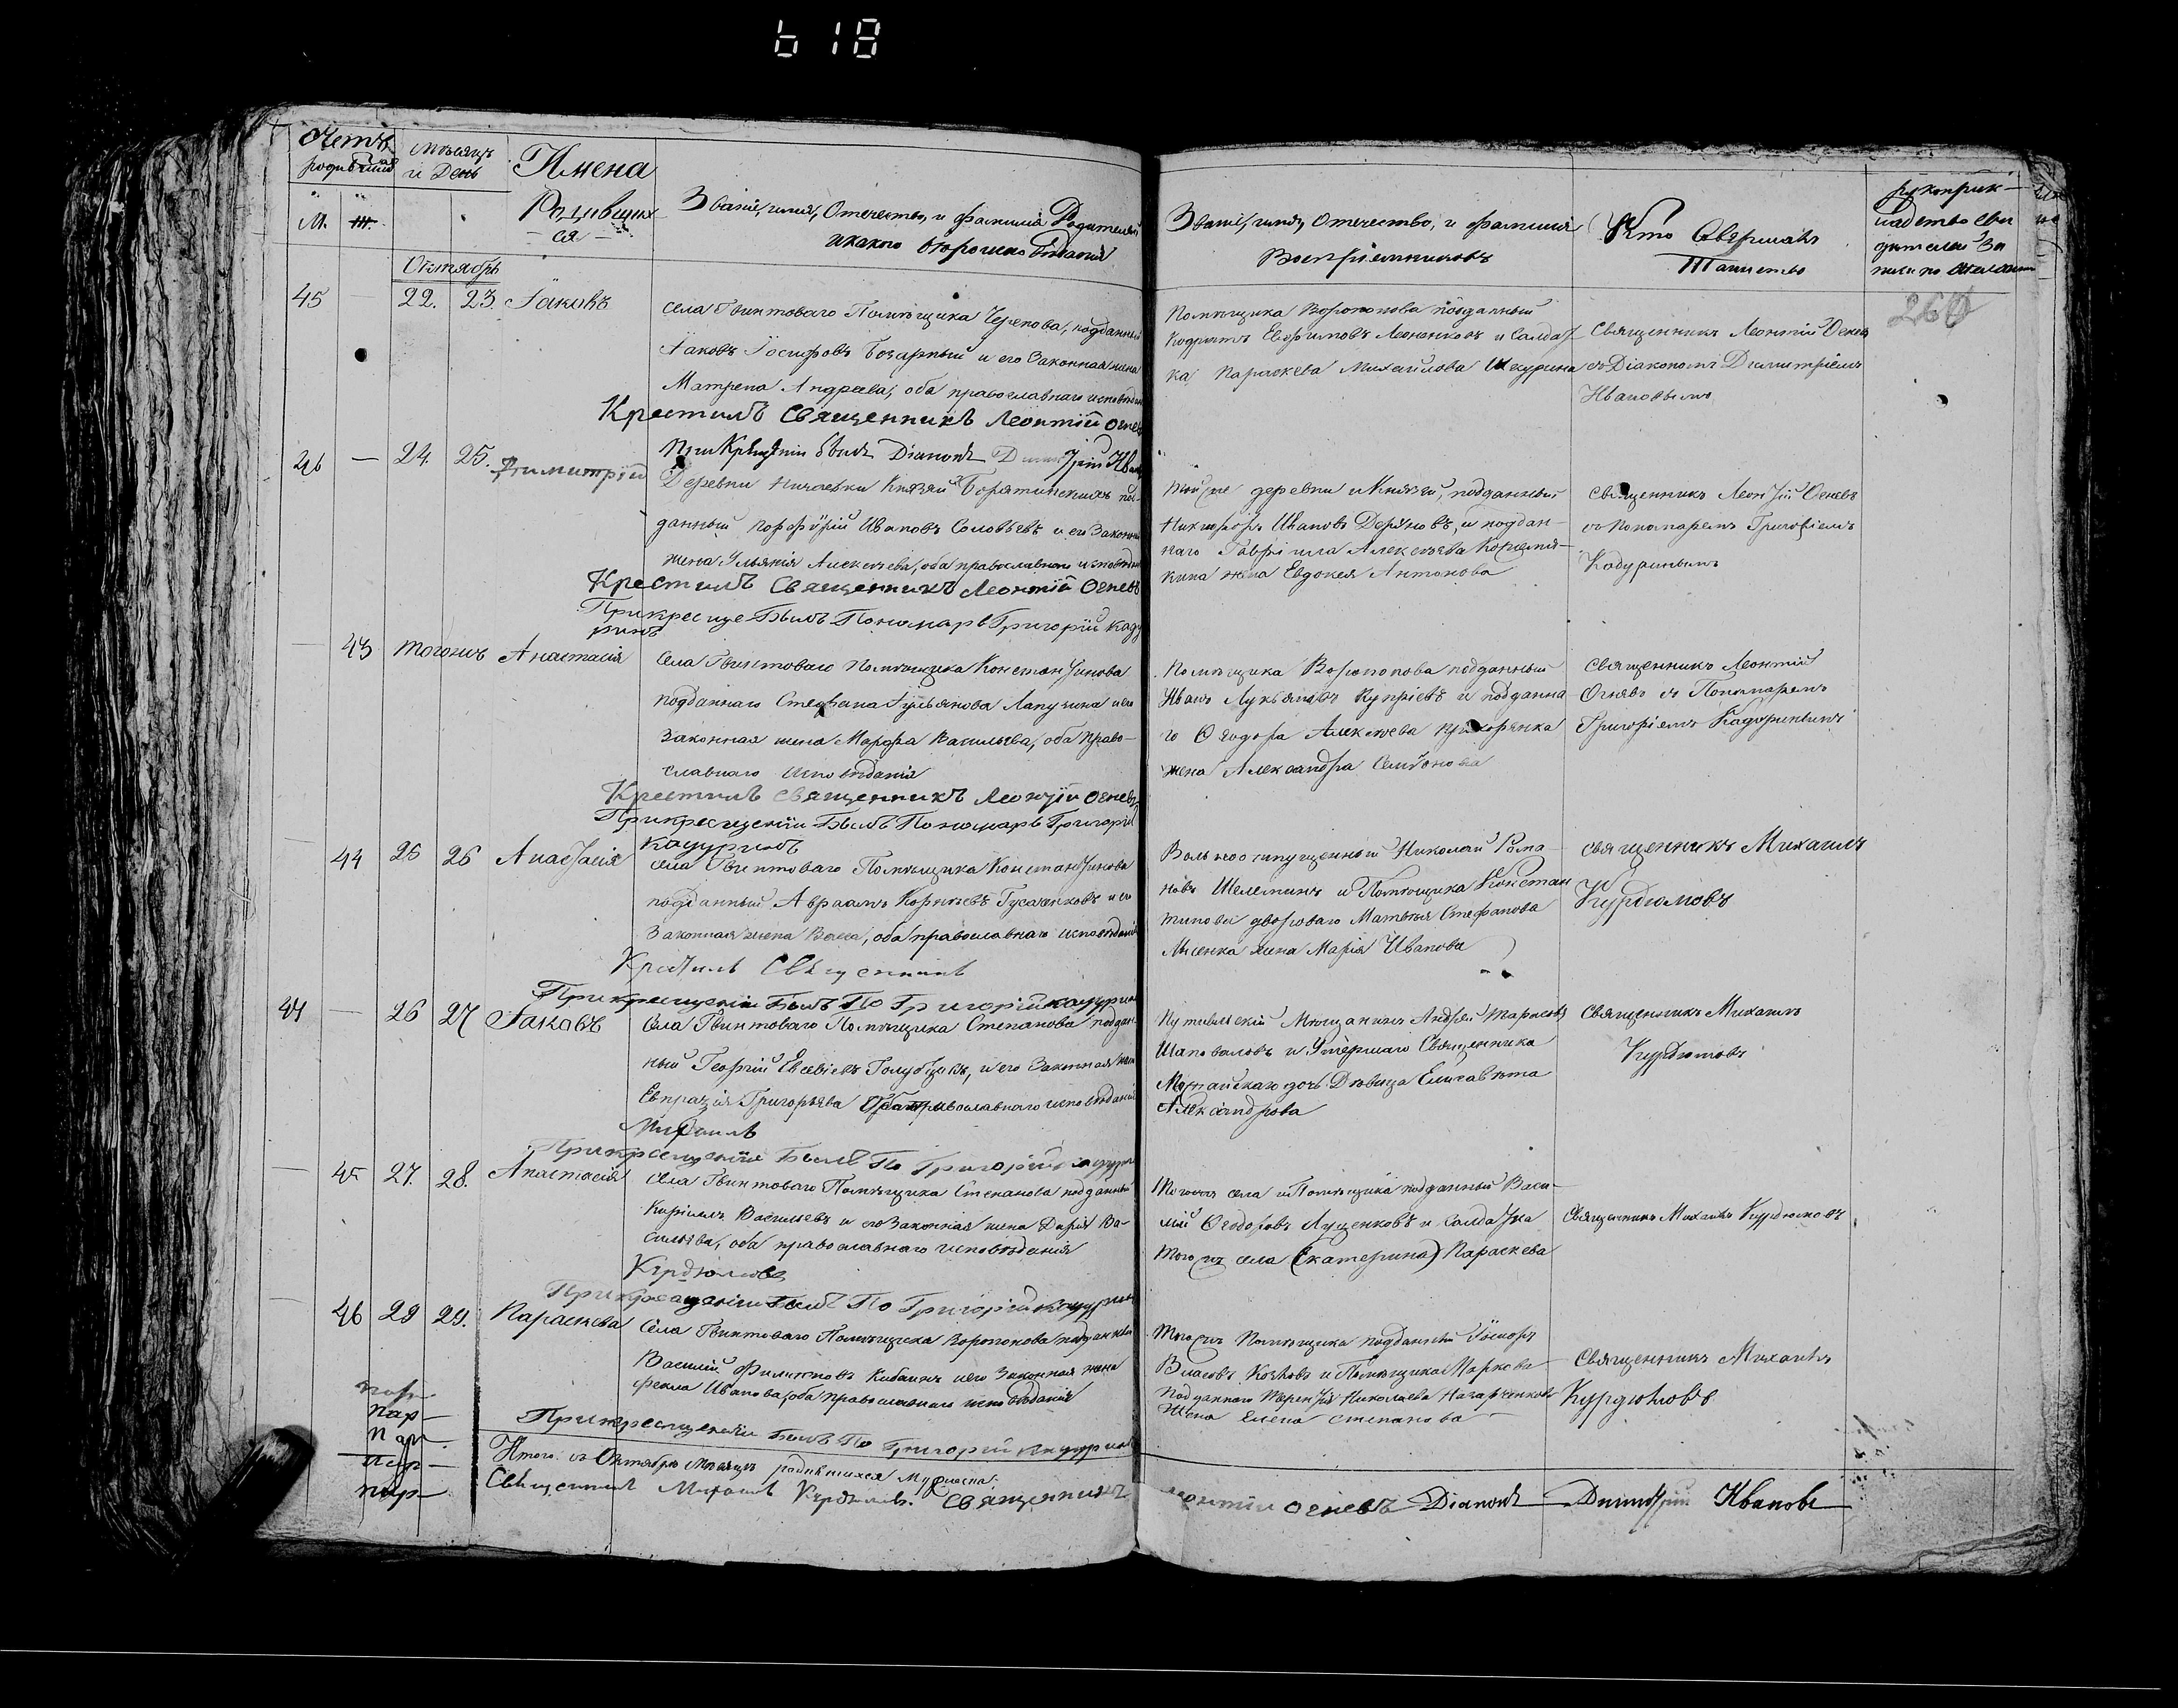 618
Счетъ родившихся
Мѣсяцъ и День
Имена Родившихся
Званіе, имя, Отечество, и фамилія Родителей
и какого вѣроисповѣданія
Званіе, имя, Отечество, и фамилія
Воспріемниковъ
Кто Совершалъ
Таинство
рукоприкладство свидѣтелей записи по желанію
М. Ж.
Октябрь
260
45 22. 23. Іаковъ
села Гвинтоваго Помѣщика Черепова, подданный
Іаковъ Іосифовъ Бочарный и его Законная жена
Матрена Андреева, оба православнаго исповѣданія
Помѣщика Воропонова подданный
Кодратъ Евфимовъ Леоненковъ и Салдатка Параскева Михайлова Шекурина
Священникъ Леонтій Огневъ
съ Діакономъ Димитріемъ
Ивановымъ
Крестилъ Священникъ Леонтій Огневъ
При Крещеніи былъ Діаконъ Димитрій Ивановъ
46 — 24. 25. Димитрій
Деревни Ничаевки Князей Борятинскихъ подданный Порфирій Ивановъ Соловьевъ и его Законная
жена Ульянія Алексѣева, оба православнаго исповѣданія
Той же деревни и Князей, подданный
Никифоръ Ивановъ Деряновъ, и подданнаго Гавріила Алексѣева
жена Евдокея Антонова
Священникъ Леонтій Огневъ
съ Пономаремъ Григоріемъ
Кадуринымъ
Крестилъ Священникъ Леонтій Огневъ
При крещеніи Былъ Пономарь Григорій Кадуринъ
— 43 тогожъ Анастасія
Села Гвинтоваго Помѣщика Константинова
подданнаго Стефана Гульянова Лапучина и его
Законная жена Марфа Васильева, оба Православнаго исповѣданія
Помѣщика Воропонова подданный
Иванъ Лукьяновъ Купріевъ и подданнаго Ѳеодора Алексѣева
жена Александра Семіонова
Священникъ Леонтій
Огневъ съ Пономаремъ
Григоріемъ Кадуринымъ
Крестилъ Священникъ Леонтій Огневъ
При крещеніи Былъ Пономарь Григорій
Кадуринъ
— 44 25 26 Анастасія
села Гвинтоваго Помѣщика Константинова
подданный Авраамъ Корнѣевъ Гусаченковъ и его
Законная жена Васса, оба православнаго исповѣданія
Вольноотпущенный Николай Романовъ Шелепинъ и Помѣщика Константинова двороваго Матвѣя Стефанова
Лысенка жена Марія Иванова
Священникъ Михаилъ
Курдюмовъ
Крестилъ Священникъ
При крещеніи Былъ По Григорій Кадуринъ
47 — 26 27 Іаковъ
Села Гвинтоваго Помѣщика Степанова подданный Георгій Евсевіевъ Голубцовъ, и его Законная жена
Евпраксія Григорьева Оба православнаго исповѣданія
Путивльскій Мещанинъ Андрей Тарасовъ
Шаповаловъ и Умершаго Священника
дочь Девица Елисавета
Александрова
Священникъ Михаилъ
Курдюмовъ
Михаилъ
При крещеніи Былъ По Григорій Кадуринъ
— 45 27. 28. Анастасія
Села Гвинтоваго Помѣщика Степанова подданный
Кириллъ Васильевъ и его Законная жена Дарія Васильева, оба православнаго исповѣданія
Тогожъ села и Помѣщика подданный Василій Ѳеодоровъ Луценковъ и Салдатка
тогожъ села (Екатерина) Параскева
Священникъ Михаилъ Курдюмовъ
Курдюмовъ
При крещеніи Былъ По Григорій Кадуринъ
— 46 29 29. Параскева
Села Гвинтоваго Помѣщика Воропонова подданный
Василій Филиповъ Кабанъ и его Законная жена
Фекла Иванова, оба православнаго исповѣданія
Тогожъ Помѣщика подданный
Власовъ Козловъ и Помѣщика Маркова
Подданнаго Терентія Николаева Назарченкова
Жена Елена Степанова
Священникъ Михаилъ
Курдюмовъ
При крещеніи Былъ По Григорій Кадуринъ
Итого въ Октябрѣ Мѣсяцѣ родившихся
Священникъ Михаилъ Курдюмовъ. Священникъ Леонтій Огневъ Діаконъ Димитрій Ивановъ